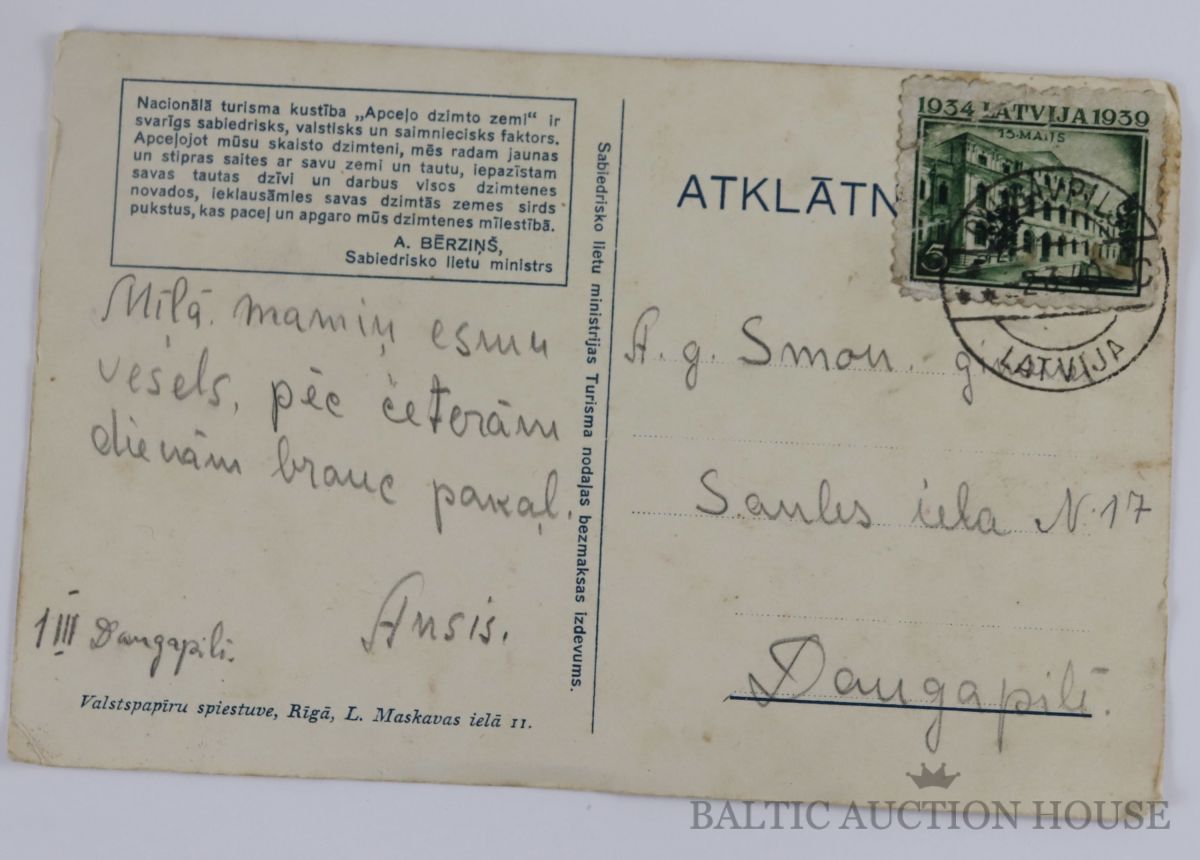 Nacionālā turisma kustība „Apceļo dzimto zemi“ ir
svarīgs sabiedrisks, valstisks un saimniecisks faktors.
Apceļojot mūsu skaisto dzimteni, mēs radam jaunas
un stipras saites ar savu zemi un tautu, iepazīstam
savas tautas dzīvi un darbus visos dzimtenes
novados, ieklausāmies savas dzimtās zemes sirds
pukstus, kas paceļ un apgaro mūs dzimtenes mīlestībā.
A. BĒRZIŅŠ,
Sabiedrisko lietu ministrs
Mīļā mamiņ esmu
vesels, pēc četerām
dienām brauc pakaļ.
Ansis.
1 III Daugapilī.
Valstspapīru spiestuve, Rīgā, L. Maskavas ielā 11.
Sabiedrisko lietu ministrijas Turisma nodaļas bezmaksas izdevums.
ATKLĀTN
1934 LATVIJA 1939
15·MAIJS
5
LATVIJA
A. g. Smon.
Saules iela N. 17
Daugapilī.
BALTIC AUCTION HOUSE